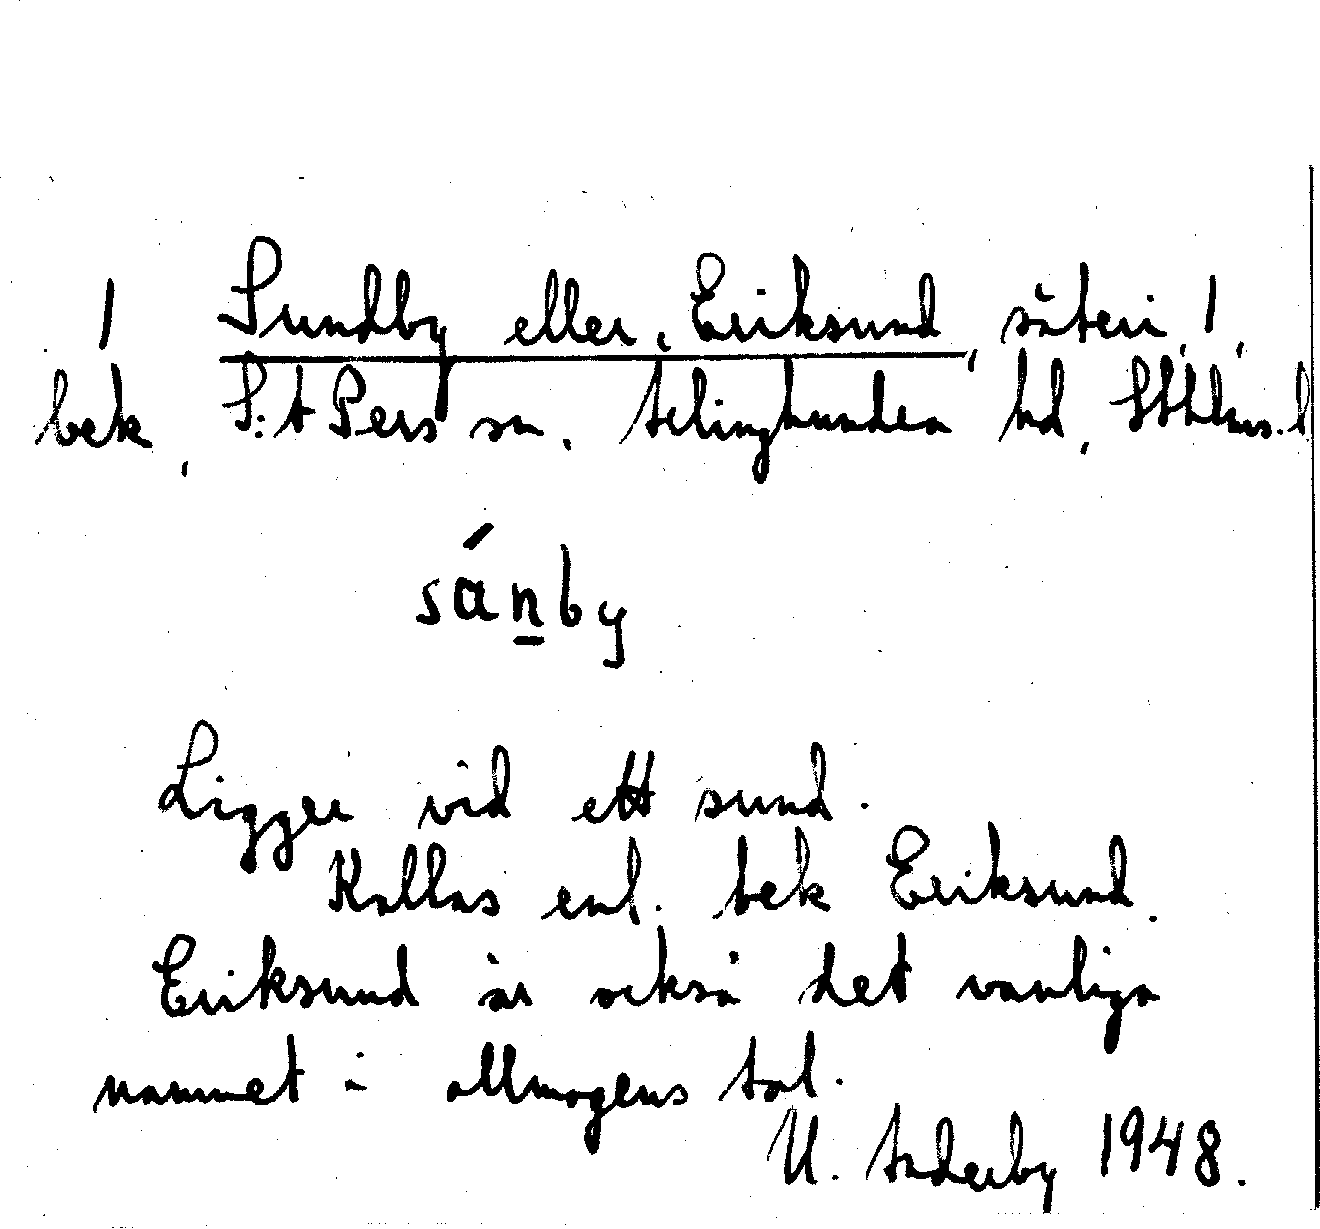 1 Sundby eller Eriksund, säteri, 1
bek, S:t Pers sn. Ärlinghundra hd, Sthlms. l
sánby
Ligger vid ett sund.
Kallas enl. bek Eriksund.
Eriksund är också det vanliga
namnet i allmogens tal.
U. 1948.